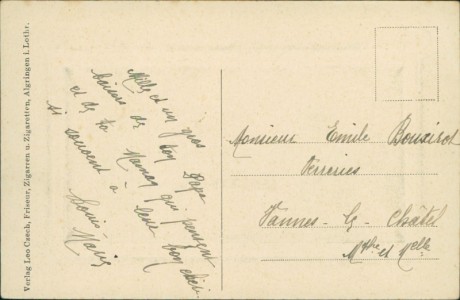 Verlag Leo Czech, Friseur, Zigarren u. Zigaretten, Algringen i. Lothr.
Mille et un gros
baisers de ton Papa
et de ta Maman qui pensent
si souvent à leur bon chéri
Louis
Monsieur Emile
Verreries
Vannes-le-Châtel
Mthe et Melle